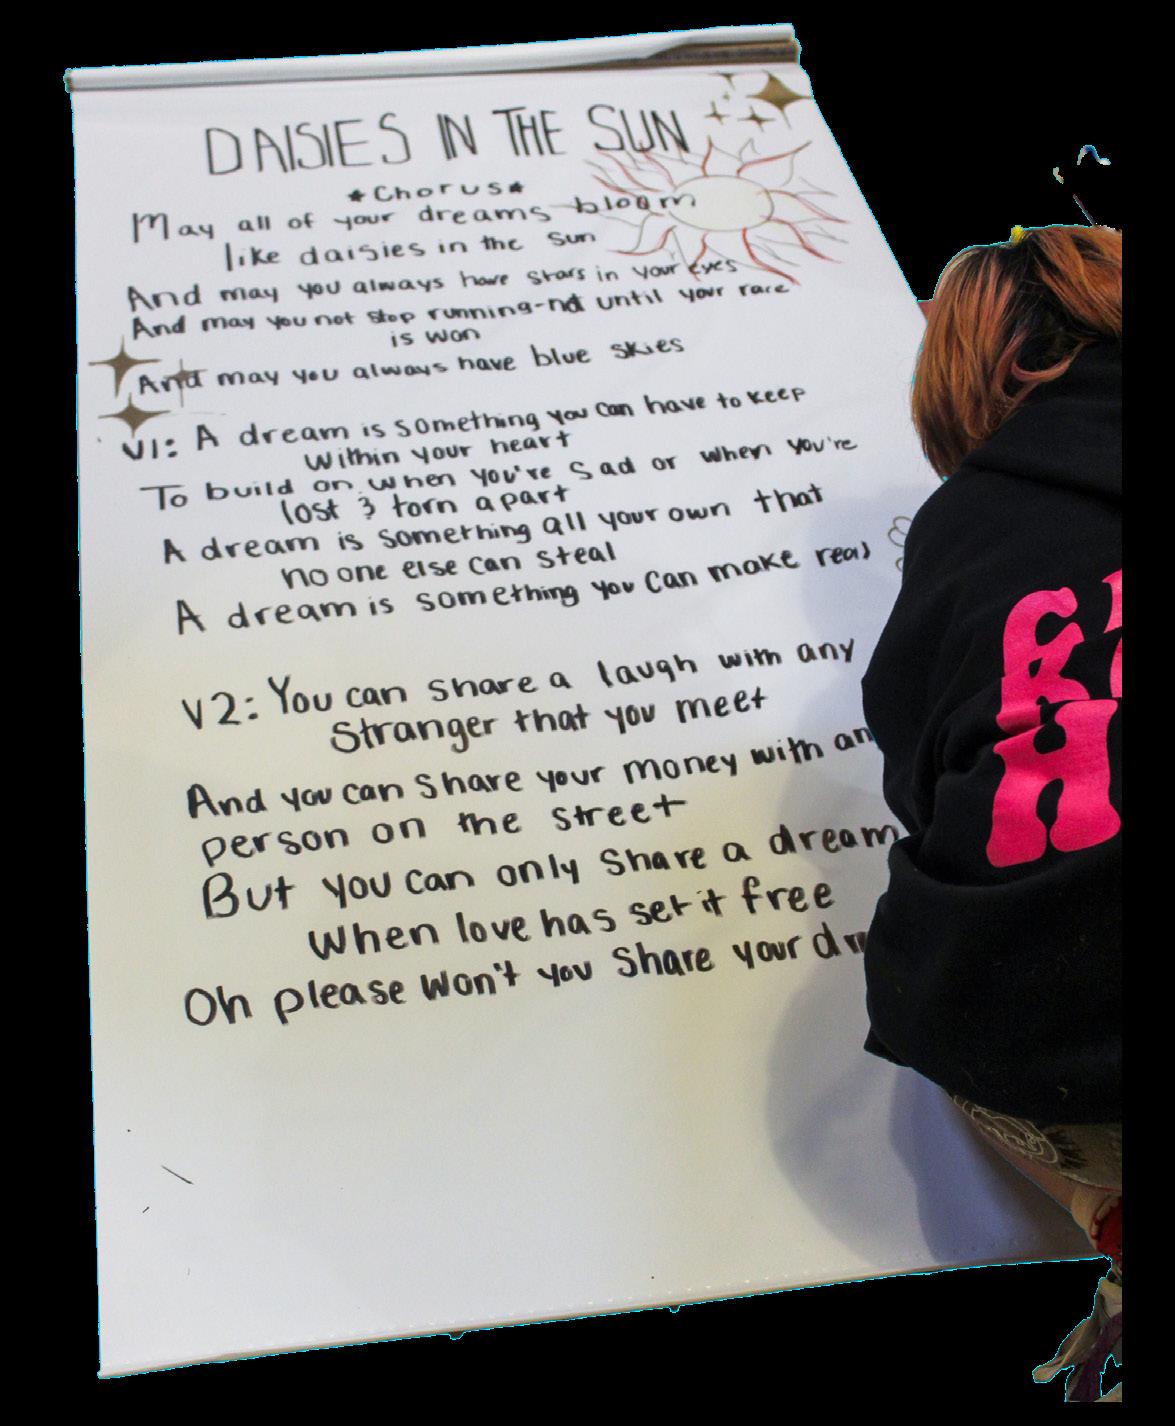 DAISIES IN THE SUN
*Chorus*
May all of your dreams bloom
like daisies in the sun
And may you always have stars in your eyes
And may you not stop running-not until your race
is won
And may you always have blue skies
V1: A dream is something you can have to keep
within your heart
To build on when you're sad or when you're
lost & torn apart
A dream is something all your own that
no one else can steal
A dream is something you can make real
V2: You can share a laugh with any
stranger that you meet
And you can share your money with an
person on the street
But you can only share a dream
When love has set it free
Oh please won't you share your